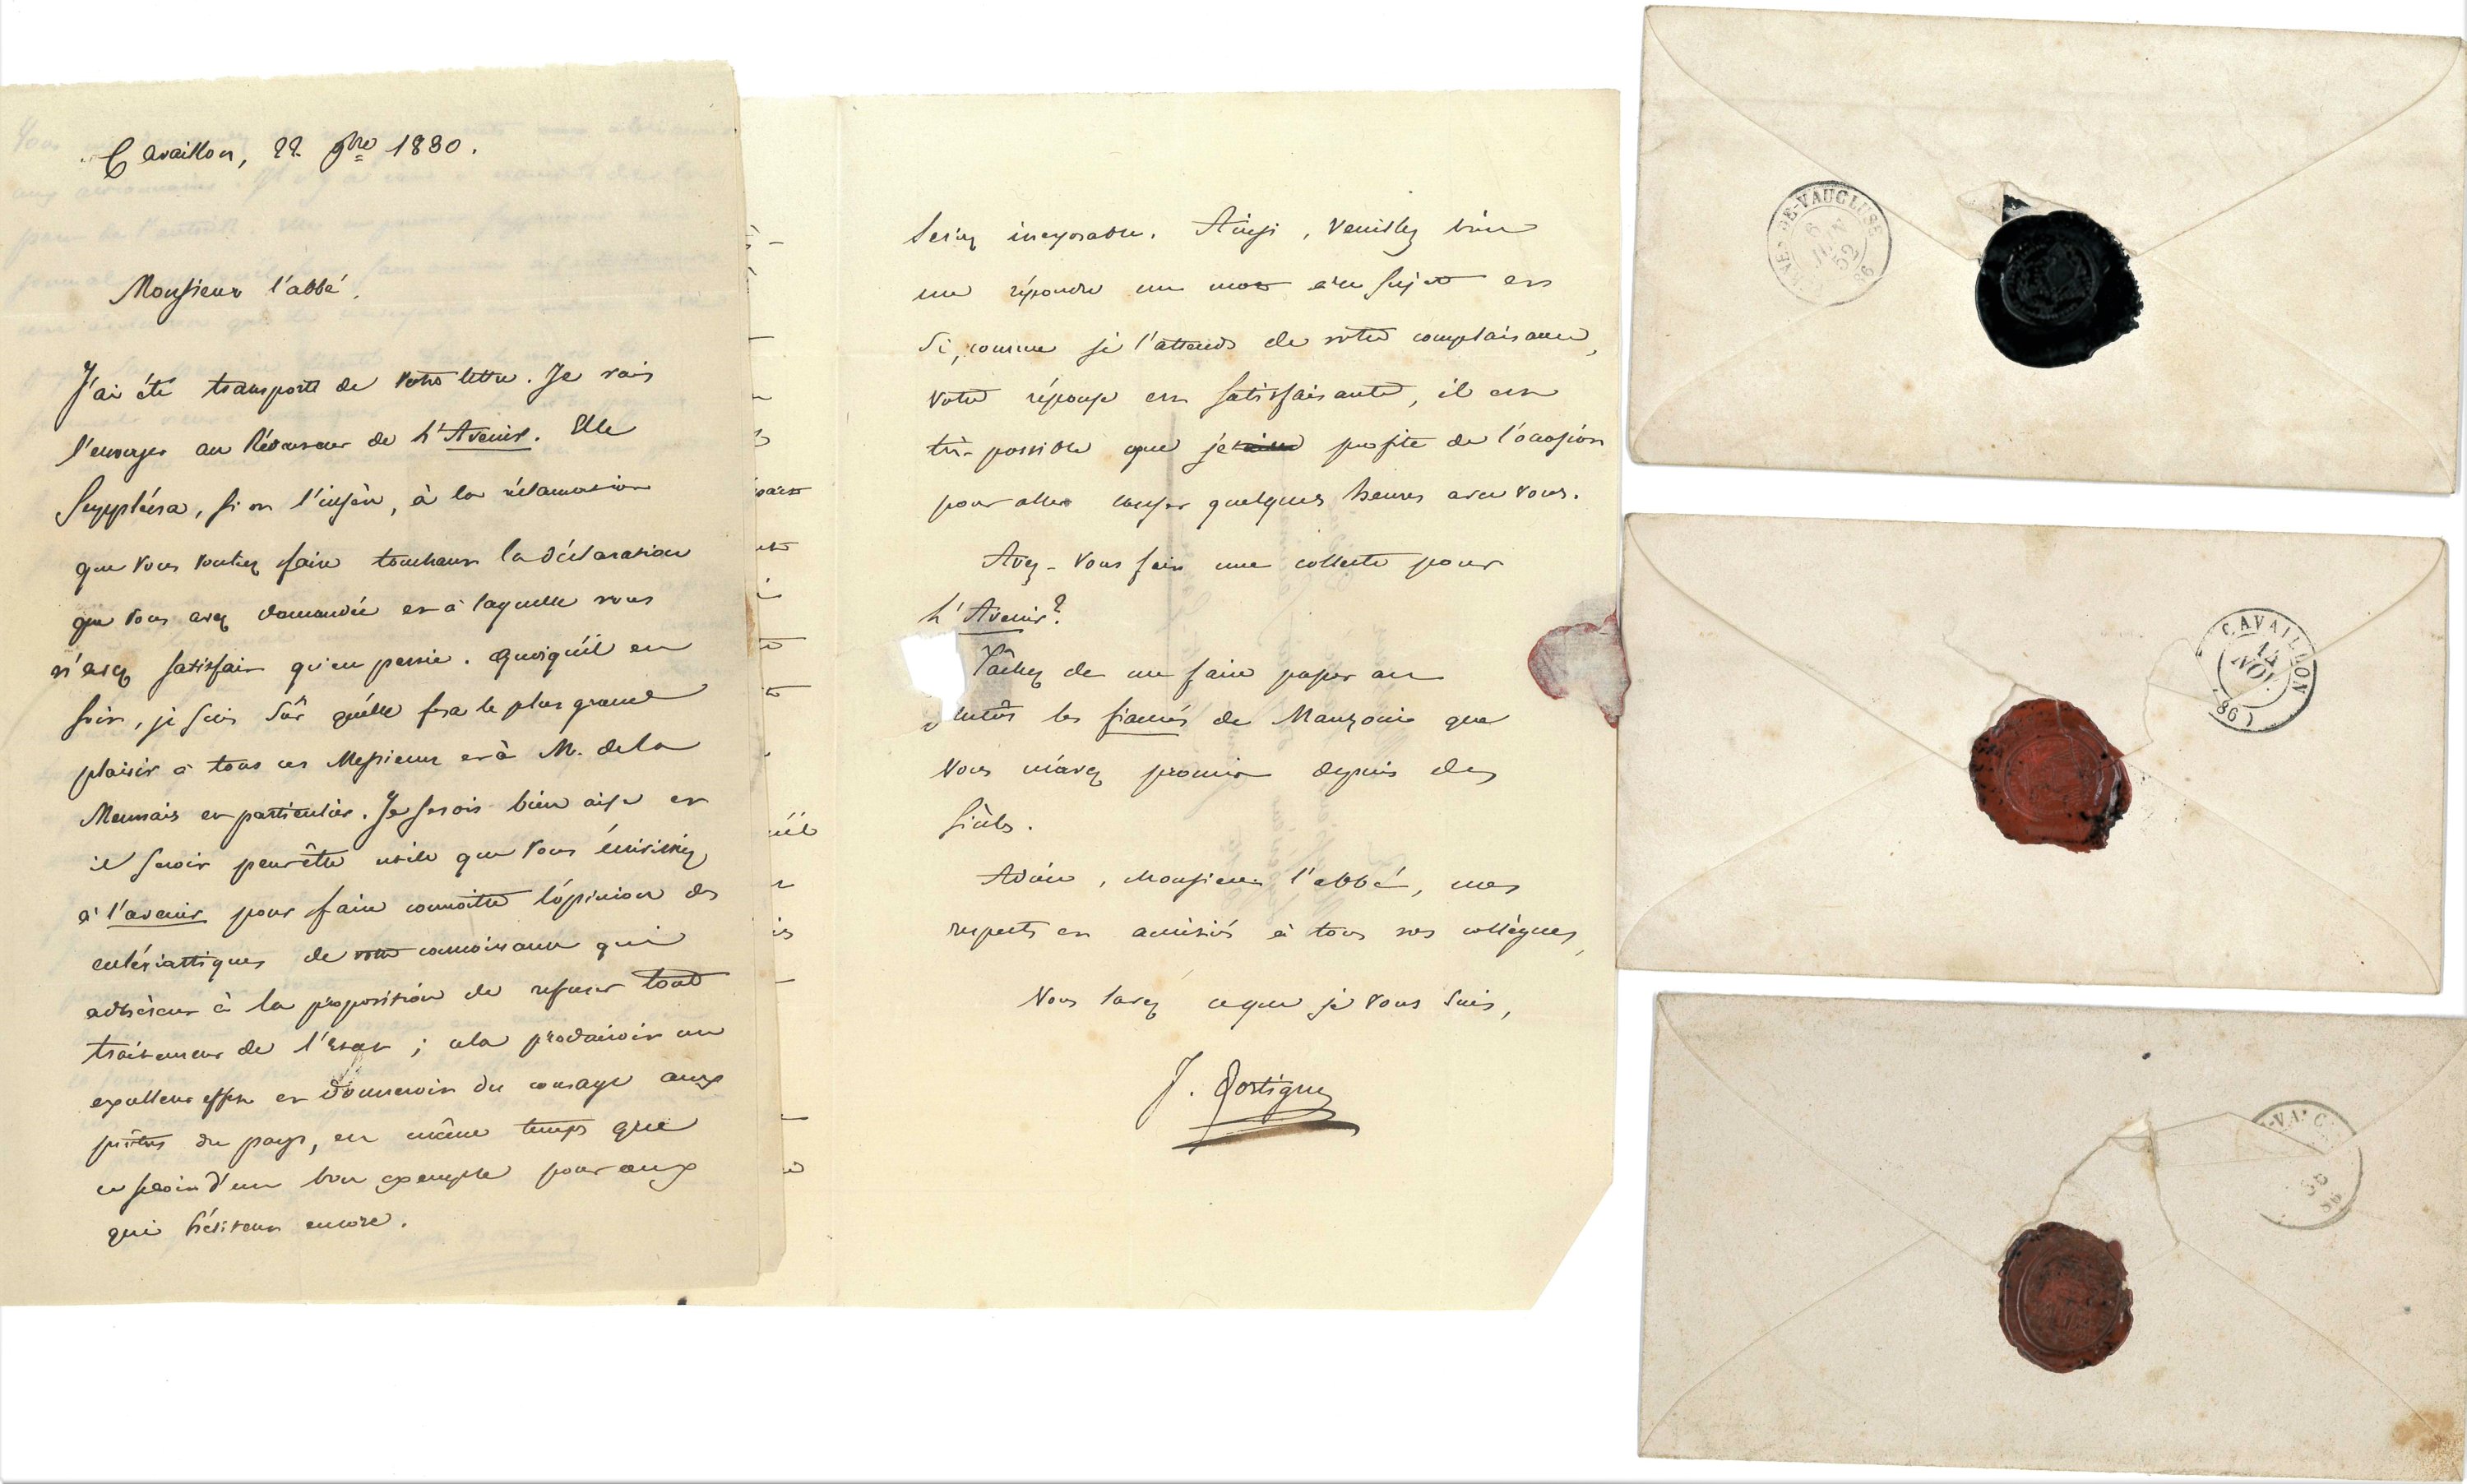 Cavaillon, 22 9bre 1830.
Monsieur l'abbé,
J'ai été transporté de votre lettre. Je vais
l'envoyer au Rédacteur de L'Avenir. Elle
suppléera, si on l'insère, à la réclamation
que vous vouliez faire touchant la déclaration
que vous avez demandée et à laquelle vous
n'avez satisfait qu'en partie. Quoiqu'il en
soit, je suis sûr qu'elle fera le plus grand
plaisir à tous ces Messieurs et à M. de la
Mennais en particulier. Je serois bien aise et
il seroit peut être utile que vous écrivissiez
à l'avenir pour faire connoître l'opinion des
ecclésiastiques de votre connoissance qui
adhèrent à la proposition de refuser tout
traitement de l'Etat ; cela produiroit un
excellent effet et donneroit du courage aux
prêtres du pays, en même temps que
ce seroit d'un bon exemple pour ceux
qui hésitent encore.
serez inexorable. Ainsi, veuillez bien
me répondre un mot à ce sujet et
si, comme je l'attends de votre complaisance,
votre réponse est satisfaisante, il est
très-possible que je profite de l'occasion
pour aller causer quelques heures avec vous.
Avez-vous fait une collecte pour
L'Avenir?
Tâchez de me faire passer au
plutôt les fiancés de Manzoni que
vous m'avez promis depuis des
siècles.
Adieu, Monsieur l'abbé, mes
respects et amitiés à tous vos collègues,
Vous savez ce que je vous suis,
J. Dortigue
DE-VAUCLUSE
6
JUIN
52
86
CAVAILLON
14
NOV.
(86)
-VAUC
86